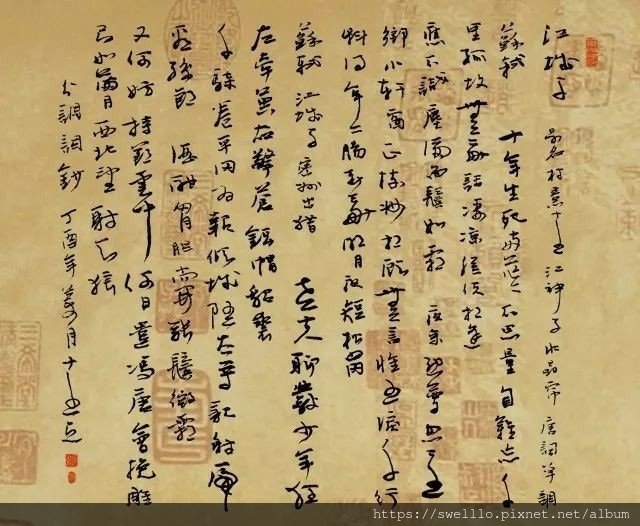 江城子 別名村意遠 江神子 水晶簾 唐詞單調
蘇軾 十年生死兩茫茫 不思量 自難忘 千
里孤墳 無處話淒涼 縱使相逢
應不識 塵滿面 鬢如霜 夜來幽夢忽還
鄉 小軒窗 正梳妝 相顧無言 惟有淚千行
料得年年腸斷處 明月夜 短松岡
蘇軾 江城子 密州出獵 老夫聊發少年狂
左牽黃 右擎蒼 錦帽貂裘
千騎卷平岡 為報傾城隨太守 親射虎
看孫郎 酒酣胸膽尚開張 鬢微霜
又何妨 持節雲中 何日遣馮唐 會挽雕
弓如滿月 西北望 射天狼
丁酉年 月十五
https://swelllo.pixnet.net/album